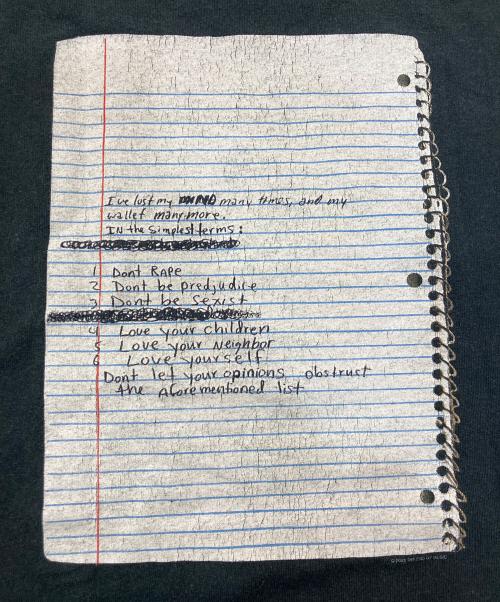 I've lost my MIND many times, and my
wallet many more.
IN the simplest terms:
1 Dont RApe
2 Dont be predjudice
3 Dont be Sexist
4 Love your children
5 Love your Neighbor
6 Love yourself
Dont let your opinions obstrust
the Aforementioned list